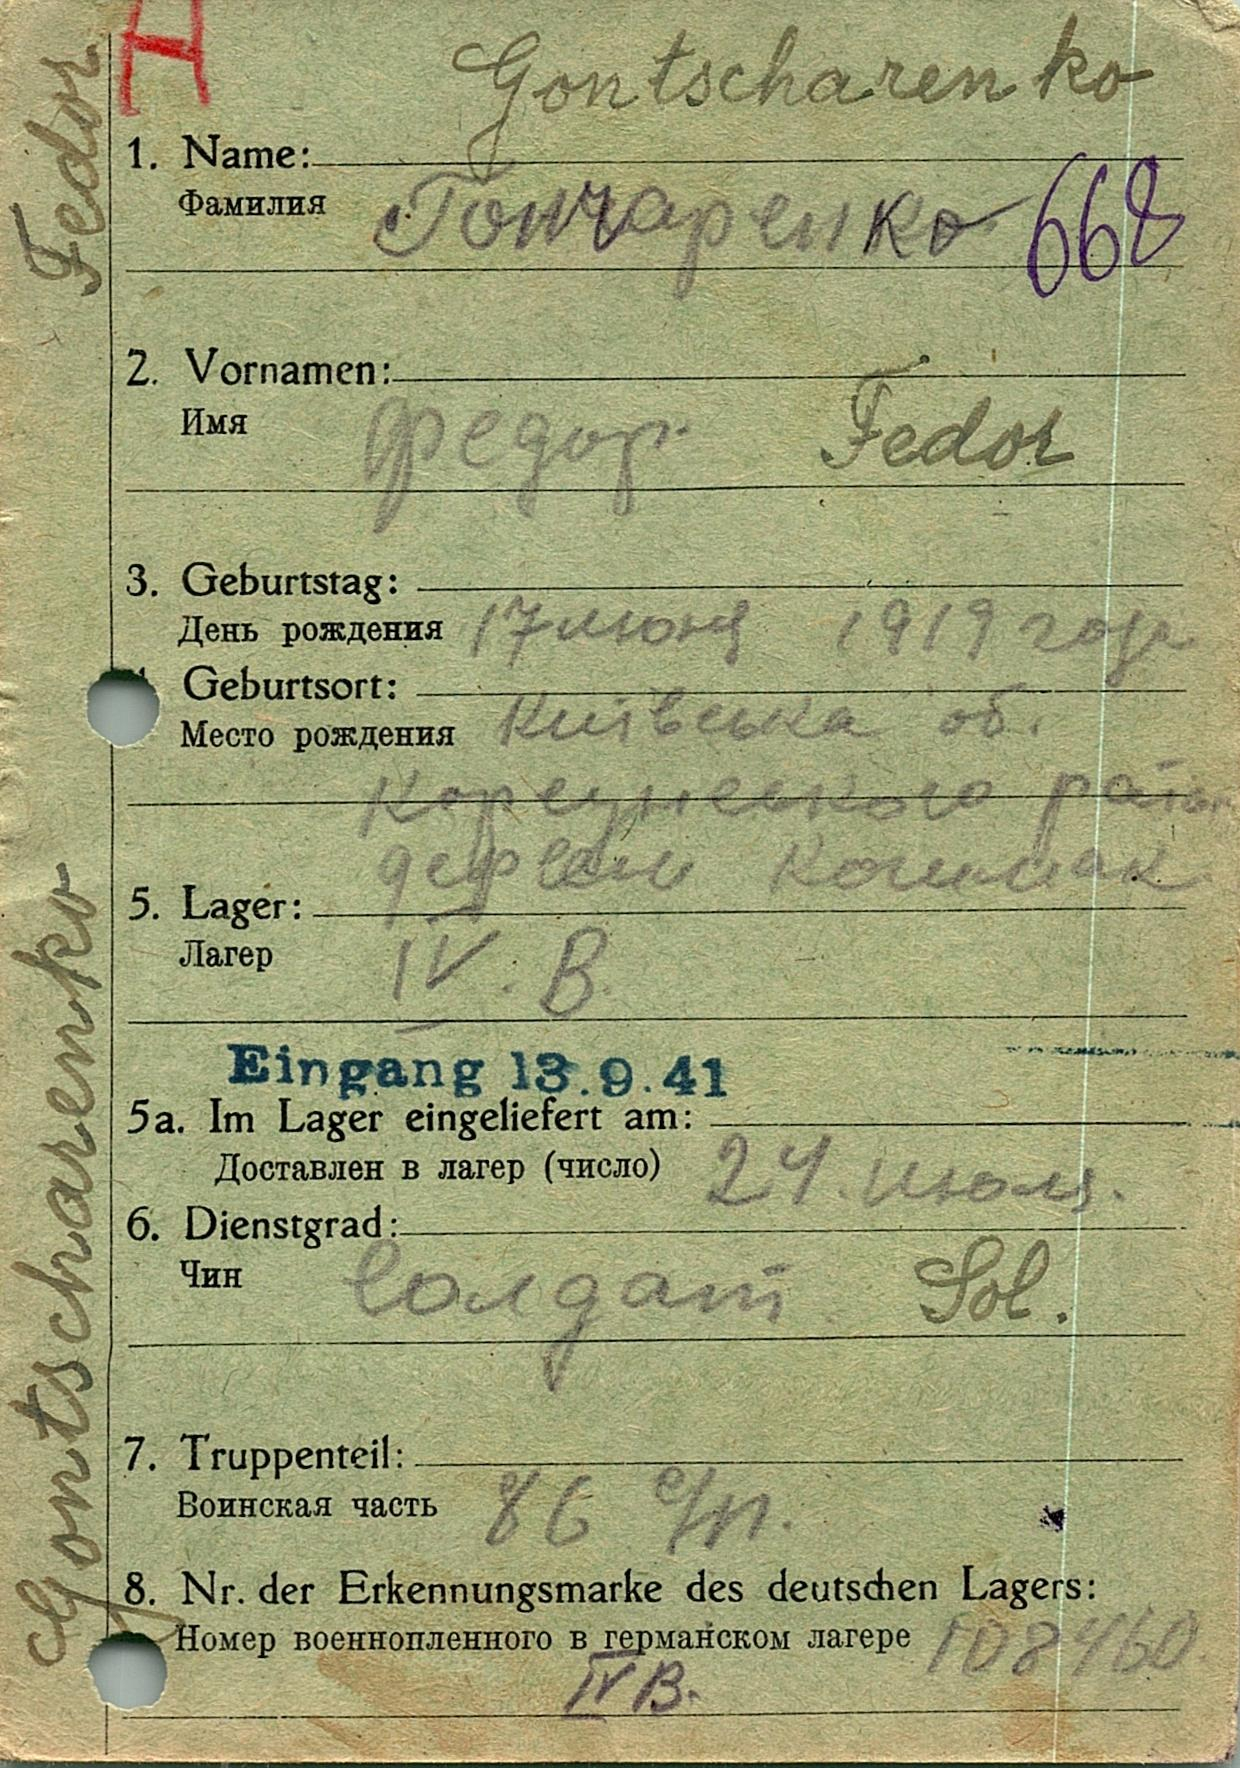 H
Fedor
Gontscharenko
Gontscharenko
1. Name:
Фамилия Гончаренко 668
2. Vornamen:
Имя Федор. Fedor
3. Geburtstag:
День рождения 17 июня 1919 года
Geburtsort:
Место рождения Київська об.
Корсунського район
Кошмак
5. Lager:
Лагер IV. B.
Eingang 13.9.41
5a. Im Lager eingeliefert am:
Доставлен в лагер (число) 24. июля.
6. Dienstgrad:
Чин Солдат Sol.
7. Truppenteil:
Воинская часть 86 с/п.
8. Nr. der Erkennungsmarke des deutschen Lagers:
Номер военнопленного в германском лагере 108460.
IV B.